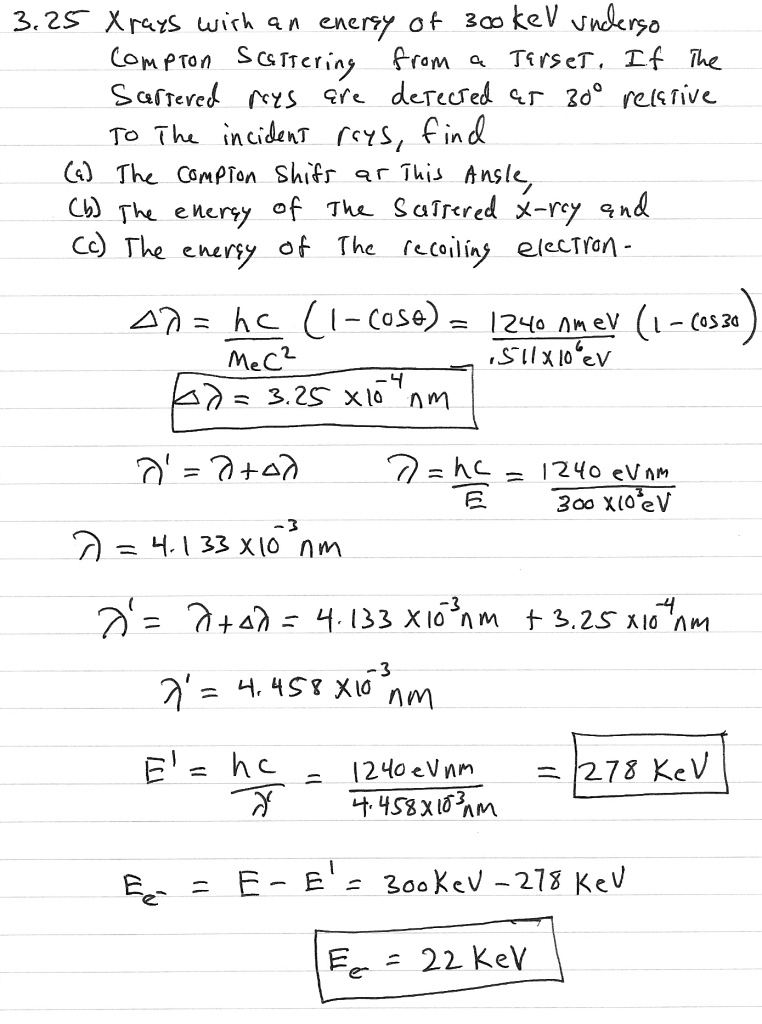 3.25 X rays with an energy of 300 keV undergo
Compton Scattering from a Target. If The
Scattered rays are detected at 30° relative
To The incident rays, find
(a) The Compton Shift at This Angle,
(b) The energy of The Scattered X-ray and
(c) The energy of The recoiling electron.
Δλ = hc/MeC² (1 - cosθ) = 1240 nm eV/.511 x 10⁶ eV (1 - cos 30)
Δλ = 3.25 x 10⁻⁴ nm
λ' = λ + Δλ λ = hc/E = 1240 eV nm/300 x 10³ eV
λ = 4.133 x 10⁻³ nm
λ' = λ + Δλ = 4.133 x 10⁻³ nm + 3.25 x 10⁻⁴ nm
λ' = 4.458 x 10⁻³ nm
E' = hc/λ' = 1240 eV nm/4.458 x 10⁻³ nm = 278 KeV
Ee⁻ = E - E' = 300 KeV - 278 KeV
Ee = 22 KeV